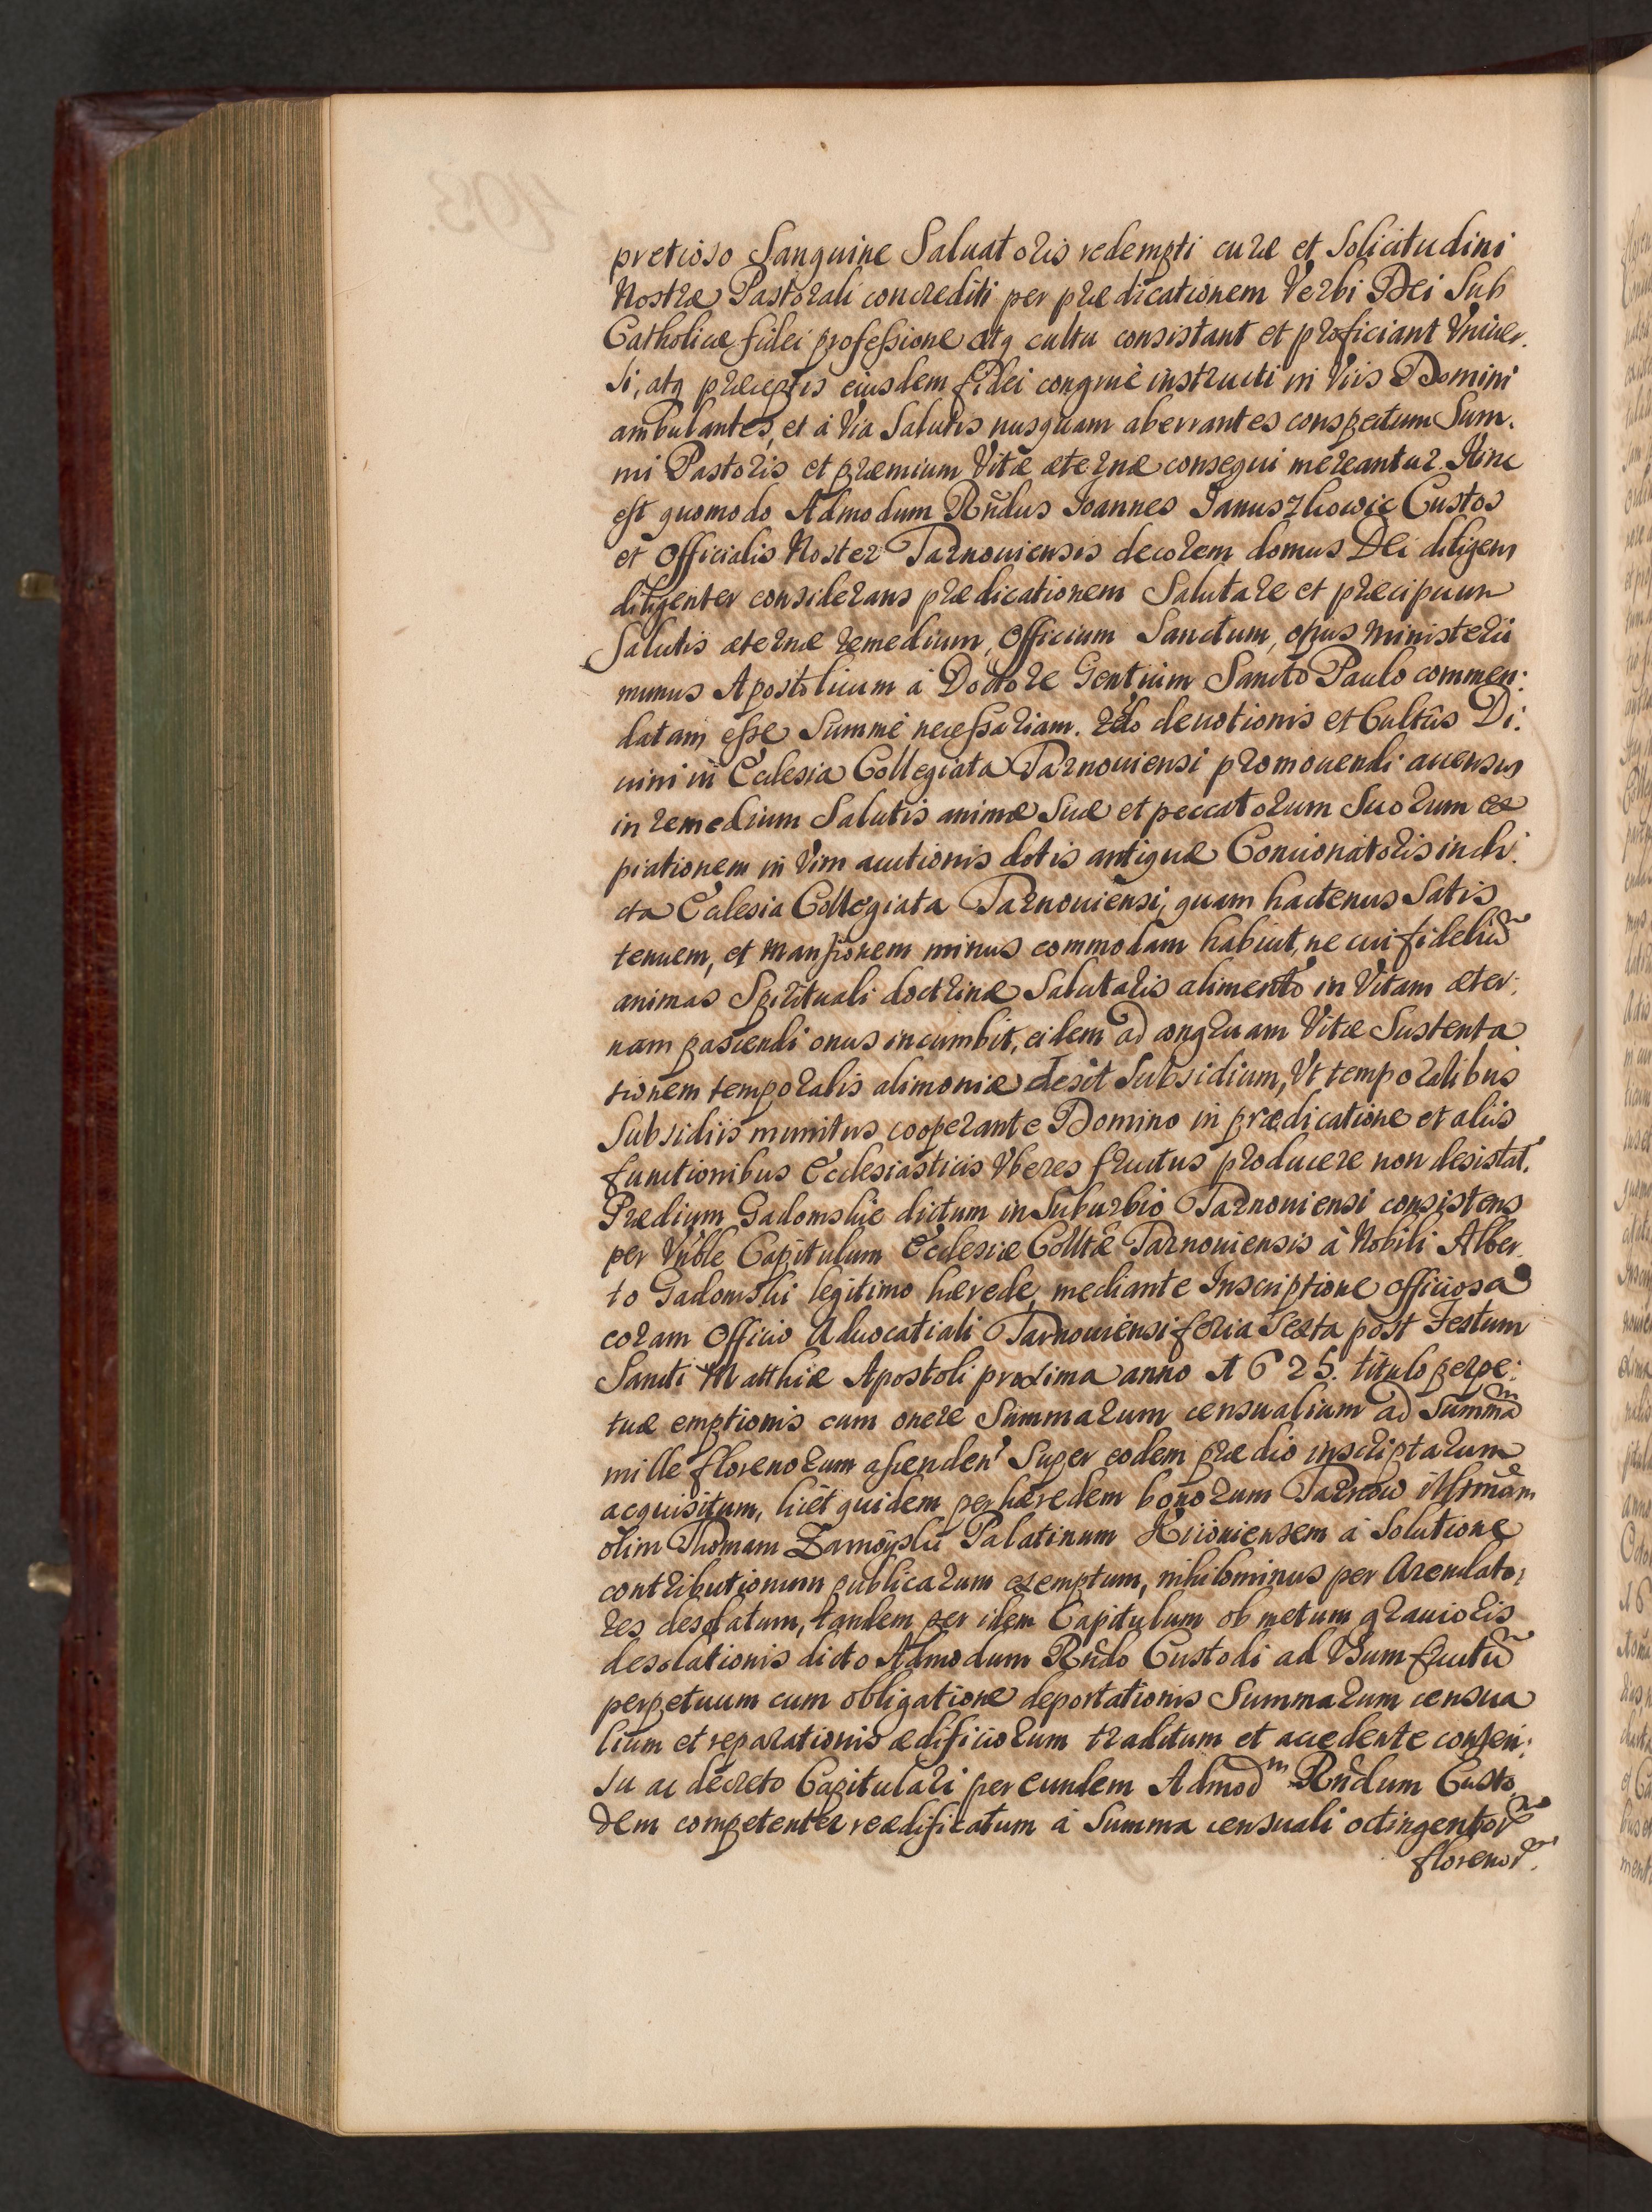 pretioso Sanguine Saluatoris redempti curæ et Solicitudini
Nostræ Pastorali concrediti per prædicationem Verbi Dei Sub
Catholicæ fidei professione atq cultu consistant et proficiant Vniuer.
si, atq præceptis eiusdem fidei congruè instructi in Viis Domini
ambulantes, et à Via Salutis nusquam aberrantes conspectum Sum.
mi Pastoris et præmium Vitæ æternæ consequi mereantur. Hinc
est quomodo Admodum Rñdus Joannes Januszkowic Custos
et Officialis Noster Tarnouiensis decorem domus Dei diligens
diligenter considerans prædicationem Salutare et præcipuum
Salutis æternæ remedium, Officium Sanctum, opus Ministerii
munus Apostolicum à Doctore Gentium Sancto Paulo commen:
datam esse Summè necessariam. Zelo deuotionis et Cultûs Di:
uini in Ecclesia Collegiata Tarnouiensi promouendi accensus
in remedium Salutis animæ Suæ et peccatorum Suorum ex
piationem in Vim auctionis dotis antiquæ Concionatoris in di:
cta Ecclesia Collegiata Tarnouiensi, quam hactenus Satis
tenuem, et Mansionem minus commodam habuit, ne cui fideliũ
animas Spirituali doctrinæ Salutaris alimento in Vitam æter:
nam pascendi onus incumbit, eidem ad congruam Vitæ Sustenta
tionem temporalis alimoniæ desit Subsidium, Vt temporalibus
Subsidiis munitus cooperante Domino in prædicatione et aliis
functionibus Ecclesiasticis Vberes fructus producere non desistat.
Prædium Gadomskie dictum in Suburbio Tarnouiensi consistens
per Vñble Capitulum Ecclesiæ Colltæ Tarnouiensis à Nobili Alber
to Gadomski legitimo hærede, mediante Inscriptione officiosa
coram Officio Aduocatiali Tarnouiensi feria Sexta post Festum
Sancti Matthiæ Apostoli proxima anno 1625. titulo perpe:
tuæ emptionis cum onere Summarum censualium ad Summã
mille florenorum ascenden' Super eodem prædio inscriptarum
acquisitum, licèt quidem per hæredem bonorum Tarnow Illstrmum
olim Thomam Zamoÿski Palatinum Kiiouiensem à Solutione
contributionum publicarum exemptum, nihilominus per Arendato:
res desolatum, tandem per idem Capitulum ob metum grauioris
desolationis dicto Admodum Rñdo Custodi ad Vsum fructũ
perpetuum cum obligatione deportationis Summarum censua
lium et reparationis ædificiorum traditum et accedente consen:
su ac decreto Capitulari per eundem Admodm Rñdum Custo
dem competenter reædificatum à Summa censuali octingentorũ
florenorũ.